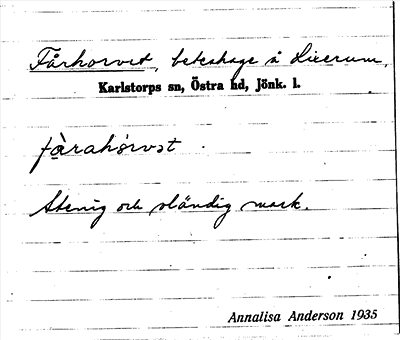 Fårhorvet, beteshage å Lixerum,
Karlstorps sn, Östra hd, Jönk. l.
Stenig och oländig mark.
Annalisa Anderson 1935